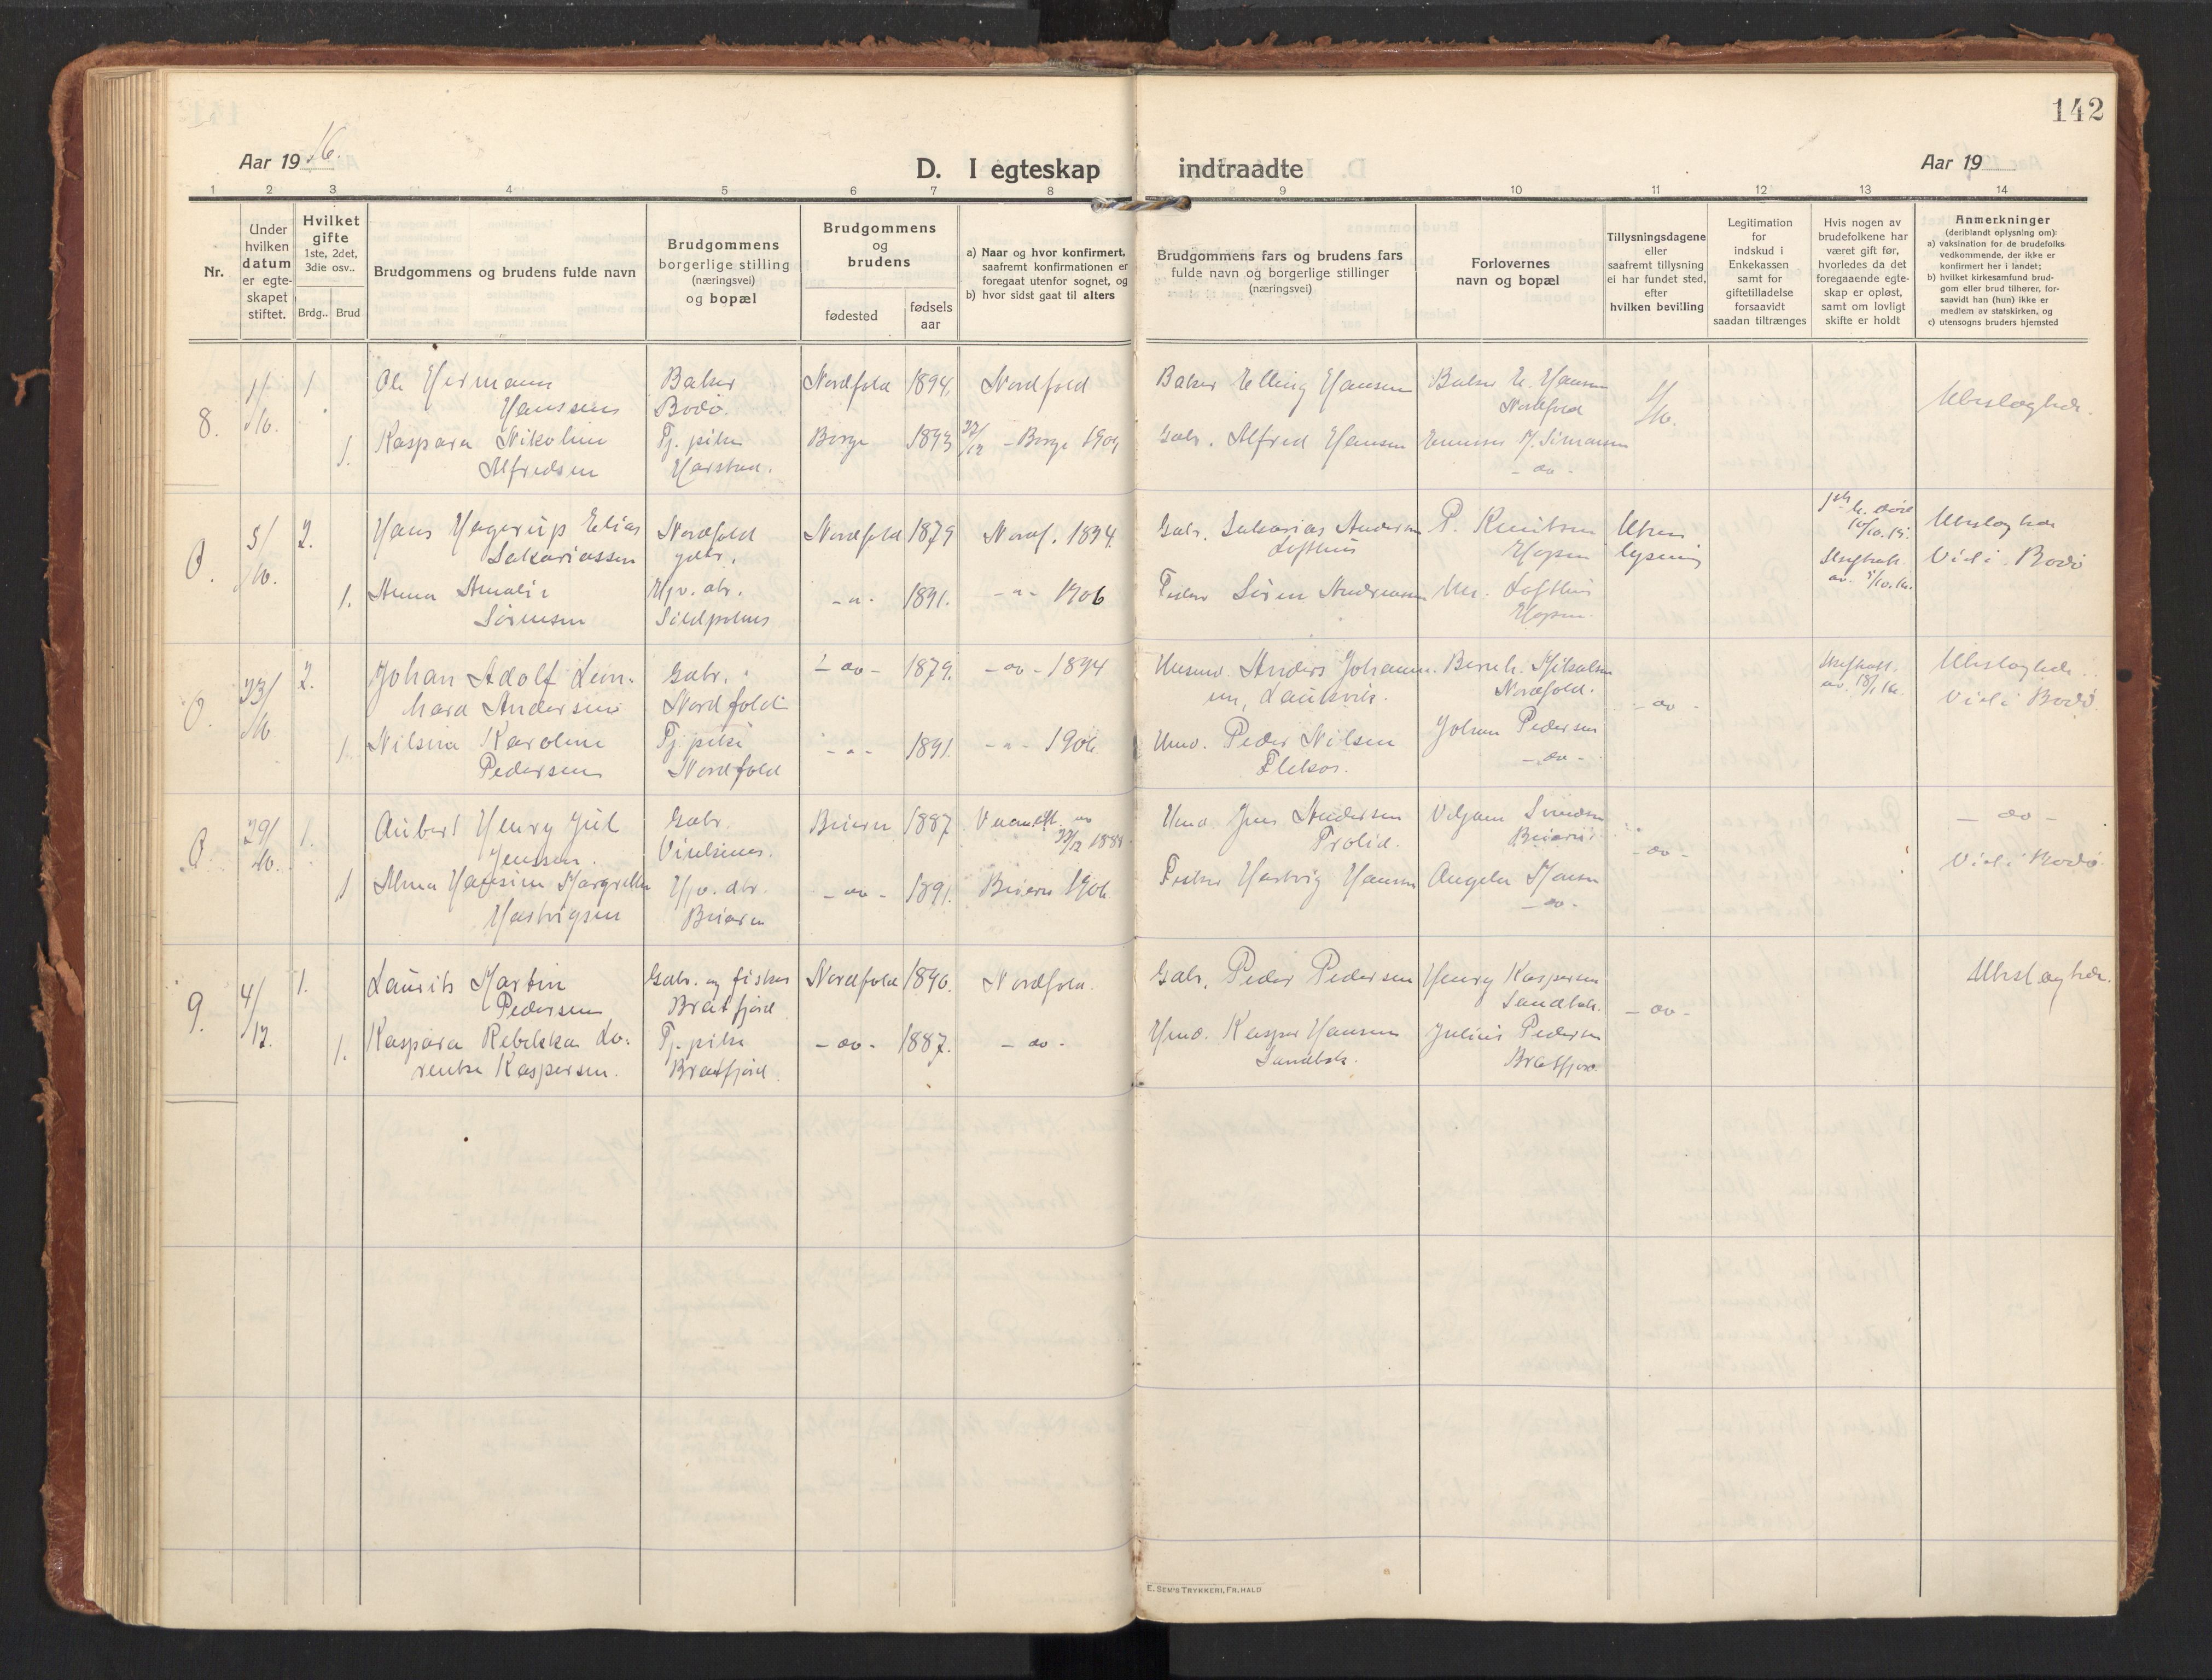 142
Aar 1916.
D. I egteskap
indtraadte
Aar 19
1 2 3 4 5 6 7 8 9 10 11 12 13 14
Nr.
Under
hvilken
datum
er egte-
skapet
stiftet.
Hvilket
gifte
1ste, 2det,
3die osv..
Brdg..
Brud
Brudgommens og brudens fulde navn
Brudgommens
borgerlige stilling
(næringsvei)
og bopæl
Brudgommens
og
brudens
fødested
fødsels
aar
a) Naar og hvor konfirmert,
saafremt konfirmationen er
foregaat utenfor sognet, og
b) hvor sidst gaat til alters
Brudgommens fars og brudens fars
fulde navn og borgerlige stillinger
(næringsvei)
Forlovernes
navn og bopæl
Tillysningsdagene
eller
saafremt tillysning
ei har fundet sted,
efter
hvilken bevilling
Legitimation
for
indskud i
Enkekassen
samt for
giftetilladelse
forsaavidt
saadan tiltrænges
Hvis nogen av
brudefolkene har
været gift før,
hvorledes da det
foregaaende egte-
skap er opløst,
samt om lovligt
skifte er holdt
Anmerkninger
(deriblandt oplysning om):
a) vaksination for de brudefolks
vedkommende, der ikke er
konfirmert her i landet;
b) hvilket kirkesamfund brud-
gom eller brud tilhører, for-
saavidt han (hun) ikke er
medlem av statskirken, og
c) utensogns bruders hjemsted
8.
1/10.
1
Ole Hermann
Hanssen
Baker
Bodø.
Nordfold
1894.
Nordfold
Baker Elling Hansen
Baker E. Hansen
Nordfold
1/10.
1.
Kaspara Nikoline
Alfredsen
Tj. pike
Harstad.
Borge
1893
27/12 - Borge 1909
Gbr. Alfred Hansen
Simonsen
- do -
0.
5/10.
2.
Hans Hagerup Elias
Sakariassen
Nordfold
gbr.
Nordfold
1879
Nordf. 1894.
Gbr. Sakarias Andersen
Lofthus
P. Knutsen
Hopen
Uten
lysning
10/10.15.
5/10.16.
Vid i Bodø
1.
Anna Amalie
Sørensen
Hjv. dtr.
Sildpolnes
- " -
1891.
- " - 1906
Fisker Søren Andreassen
Lofthus
Hopen
0.
23/10
2.
Johan Adolf Leon-
hard Andersen
Gbr.
Nordfold
- do -
1879.
- do - 1894
Husmd. Anders Johannes-
sen, Laukvik.
Bernh. Mikalsen
Nordfold.
- do -
Vid i Bodø
1.
Nilsina Karoline
Pedersen
Tj. pike
Nordfold
- " -
1891.
- " - 1906
Hmd. Peder Nilsen
Johan Pedersen
- do -
0.
29/10.
1.
Aubert Henry Juel
Jenssen.
Gbr.
Beiern
1887
Hmd Jens Andersen
Beiarn
- do -
- do -
Vid i Bodø
1
Alma Hansine Margrethe
Hartvigsen
Hjv. dtr.
Beiarn
- do -
1891.
Beiern 1906
Fisker Hartvig Hansen
Angela Hansen
- do -
9.
4/12.
1.
Laurits Martin
Pedersen
Gbr. og fisker
Brætfjord
Nordfold
1890.
Nordfold.
Gbr. Peder Pedersen
Henry Kaspersen
Sandbak.
- do -
1.
Kaspara Rebekka Lo-
rentse Kaspersen.
Tj. pike
Brætfjord
- do -
1887.
- do -
Hmd. Kasper Hansen
Sandbak.
Julius Pedersen
Brætfjord.
E. SEM'S TRYKKERI, FR.HALD